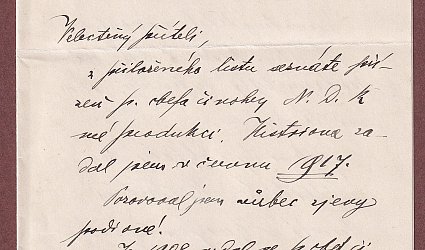 Velectěný příteli,
z přiloženého listu seznáte pří-
zeň p. šéfa činohry N. D. k
mé produkci. Historiona za-
dal jsem v červnu 1917.
Pozoroval jsem vůbec zjevy
podivné!